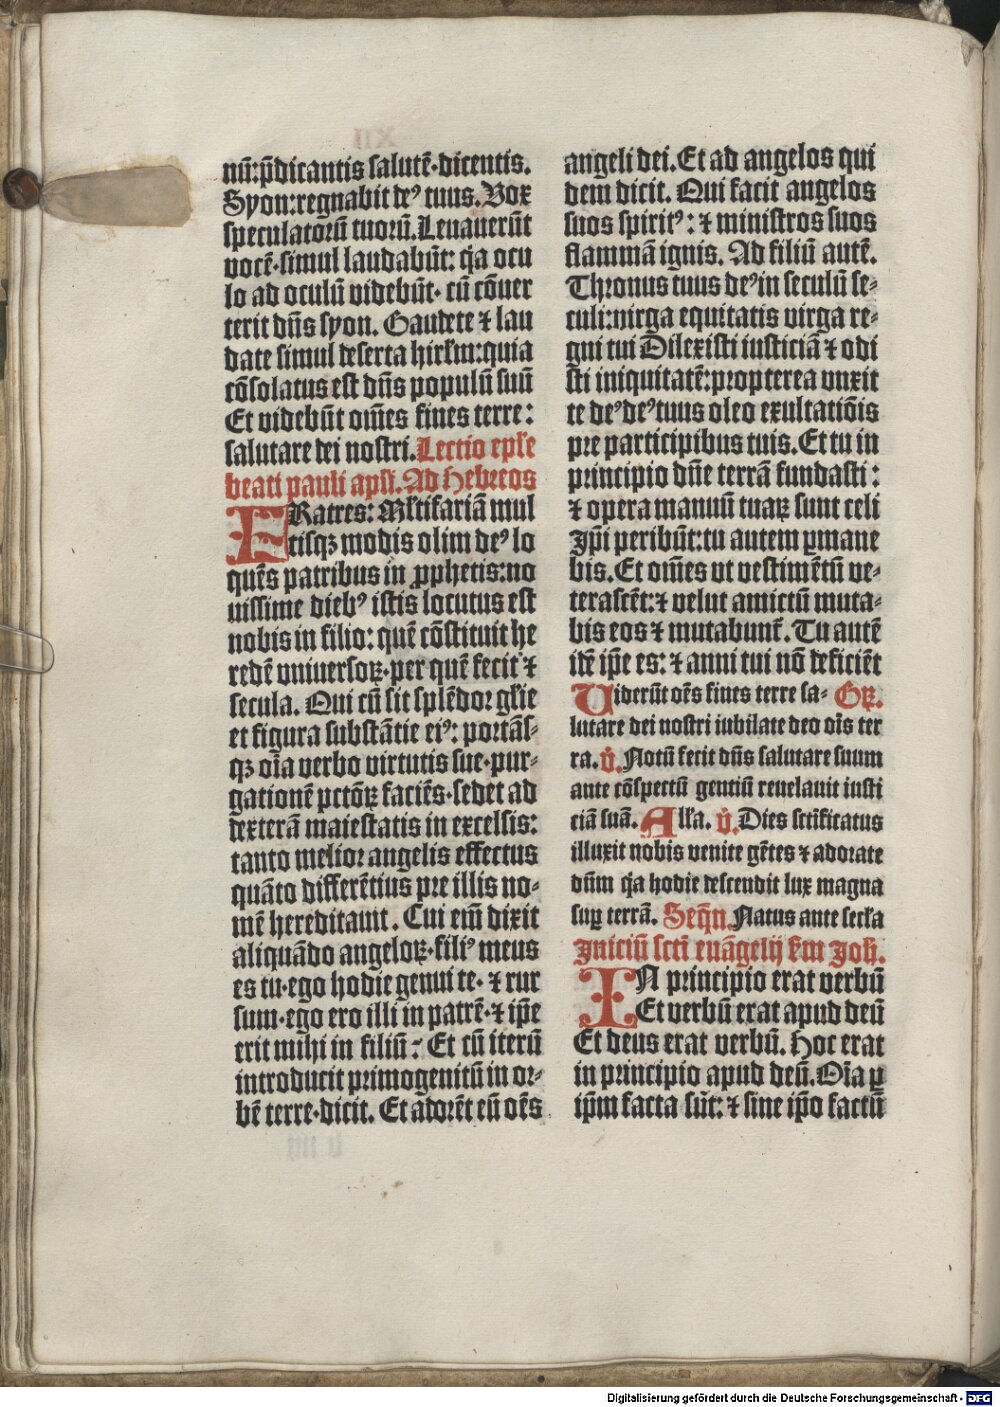 nū:p̄dicantis salutē·dicentis.
Syon:regnabit deꝰ tuus. Vox
speculatorū tuorū.Leuauerūt
vocē·simul laudabūt: q̇a ocu
lo ad oculū videbūt· cū cōuer
terit dn̄s syon. Gaudete ⁊ lau
date simul deserta hirl̄m:quia
cōsolatus est dn̄s populū suū
Et videbūt om̄es fines terre:
salutare dei nostri.Lectio epl̄e
beati pauli apl̄i. Ad Hebreos
FRatres: Ml̄tifariā mul
tisqꝫ modis olim deꝰ lo
quēs patribus in ꝓphetis:no
uissime diebꝰ istis locutus est
nobis in filio: quē cōstituit he
redē vniuersoꝝ·per quē fecit ⁊
secula. Qui cū sit splēdor gl̄ie
et figura substātie eiꝰ: portās⸗
qꝫ oīa verbo virtutis sue·pur⸗
gationē pctōꝝ faciēs·sedet ad
dexterā maiestatis in excelsis:
tanto melior angelis effectus
quāto differētius pre illis no⸗
mē hereditauit. Cui em̄ dixit
aliquādo angeloꝝ·filiꝰ meus
es tu·ego hodie genui te· ⁊ rur
sum·ego ero illi in patrē·⁊ ip̄e
erit mihi in filiū: Et cū iterū
introducit primogenitū in or⸗
bē terre·dicit. Et adorēt eū oēs
angeli dei. Et ad angelos qui
dem dicit. Qui facit angelos
suos spiritꝰ: ⁊ ministros suos
flammā ignis. Ad filiū autē.
Thronus tuus deꝰ in seculū se⸗
culi:uirga equitatis virga re⸗
gni tui Dilexisti iusticiā ⁊ odi
sti iniquitatē:propterea vnxit
te deꝰ deꝰ tuus oleo exultatiōis
pre participibus tuis. Et tu in
principio dn̄e terrā fundasti:
⁊ opera manuū tuaꝝ sunt celi
Ip̄i peribūt:tu autem ꝑmane
bis. Et om̄es vt vestimētū ve⸗
terascēt:⁊ velut amictū muta⸗
bis eos ⁊ mutabunt̄. Tu autē
idē ip̄e es: ⁊ anni tui nō deficiēt
Viderūt oēs fines terre sa⸗ Gꝝ.
lutare dei nostri iubilate deo oīs ter
ra. v̇. Notū fecit dn̄s salutare suum
ante cōspectū gentiū reuelauit iusti
ciā suā. All̄a. v̇. Dies sctīficatus
illuxit nobis venite gētes ⁊ adorate
dn̄m q̇a hodie descendit lux magna
suꝑ terrā. Seqn̄. Natus ante secl̄a
Iniciū scti euāgelij scd̄m Joh̄.
IN principio erat verbū
Et verbū erat apud deū
Et deus erat verbū. Hoc erat
in principio apud deū. Oīa ꝑ
ip̄m facta sūt: ⁊ sine ip̄o factū
Digitalisierung gefördert durch die Deutsche Forschungsgemeinschaft - DFG